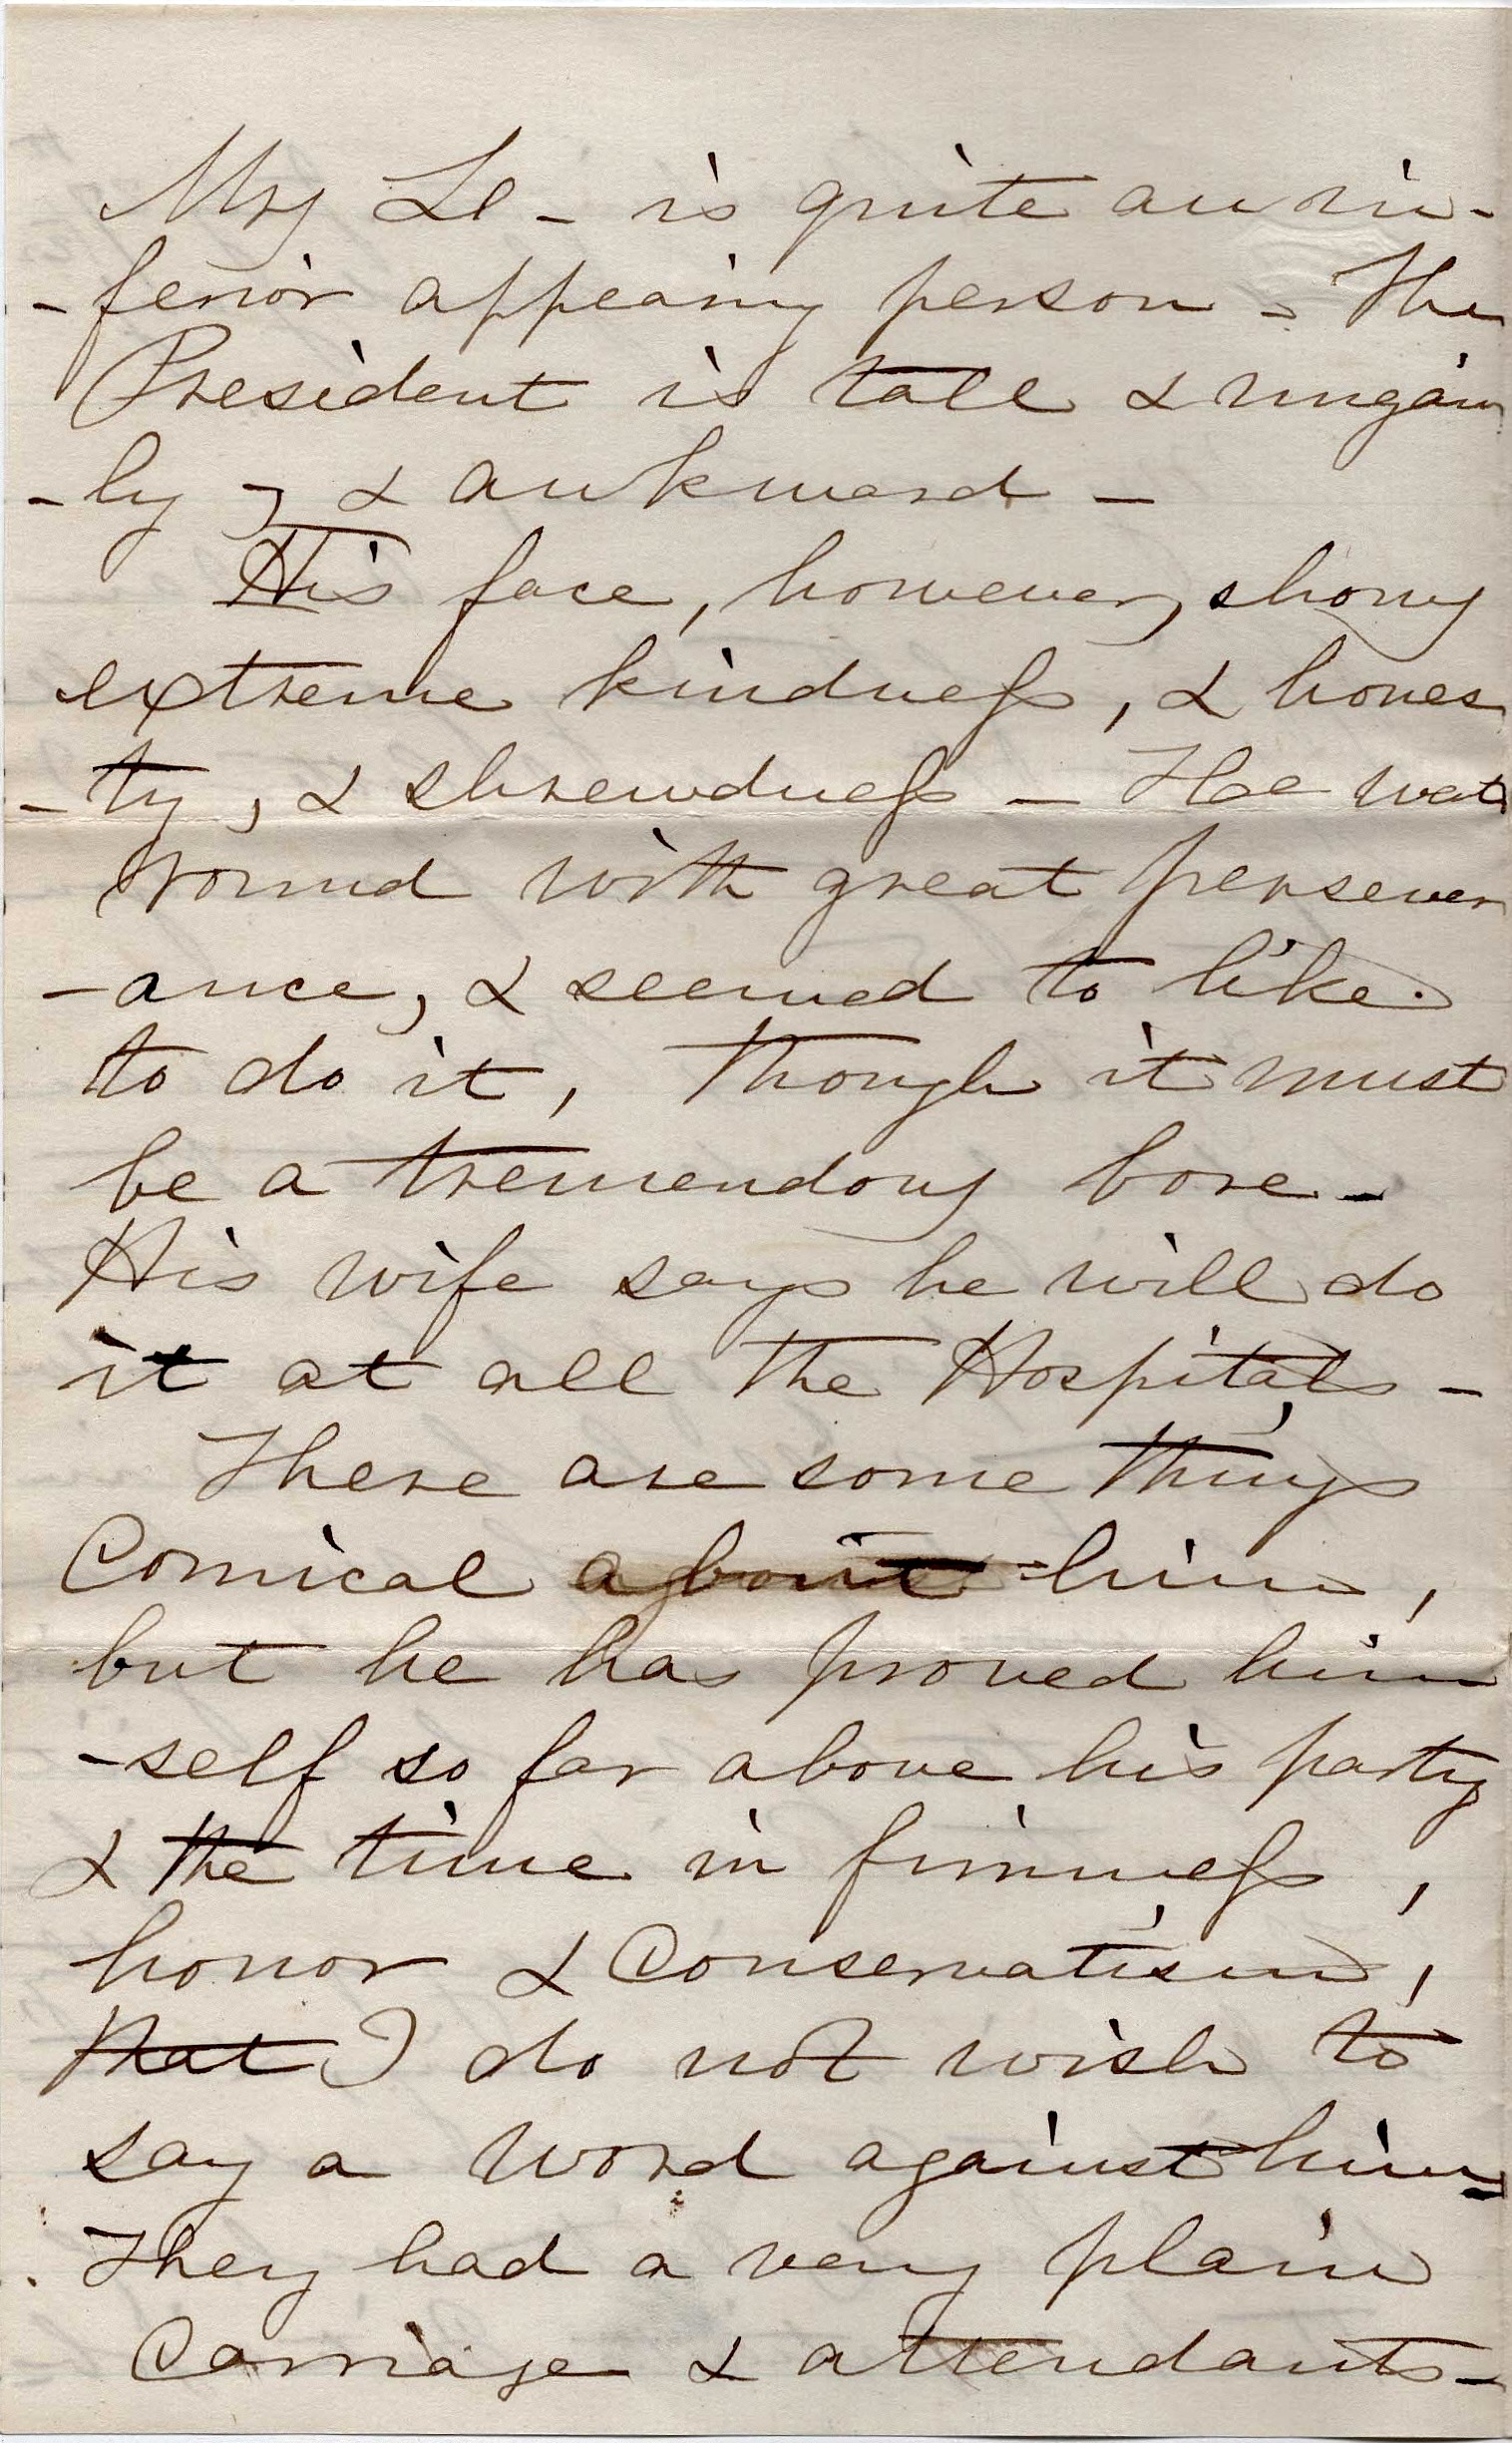 Mrs L - is quite an in-
-ferior appearing person - The
President is tall & ungain
-ly, & awkward -
His face, however, shows
extreme kindness, & hones
-ty, & shrewdness - He went
round with great persever
-ance, & seemed to like
to do it, though it must
be a tremendous bore -
His wife says he will do
it at all the Hospitals -
There are some things
Comical about him,
but he has proved him
-self so far above his party
& the time in firmness,
honor & Conservatism,
that I do not wish to
say a word against him -
They had a very plain
Carriage & attendants -